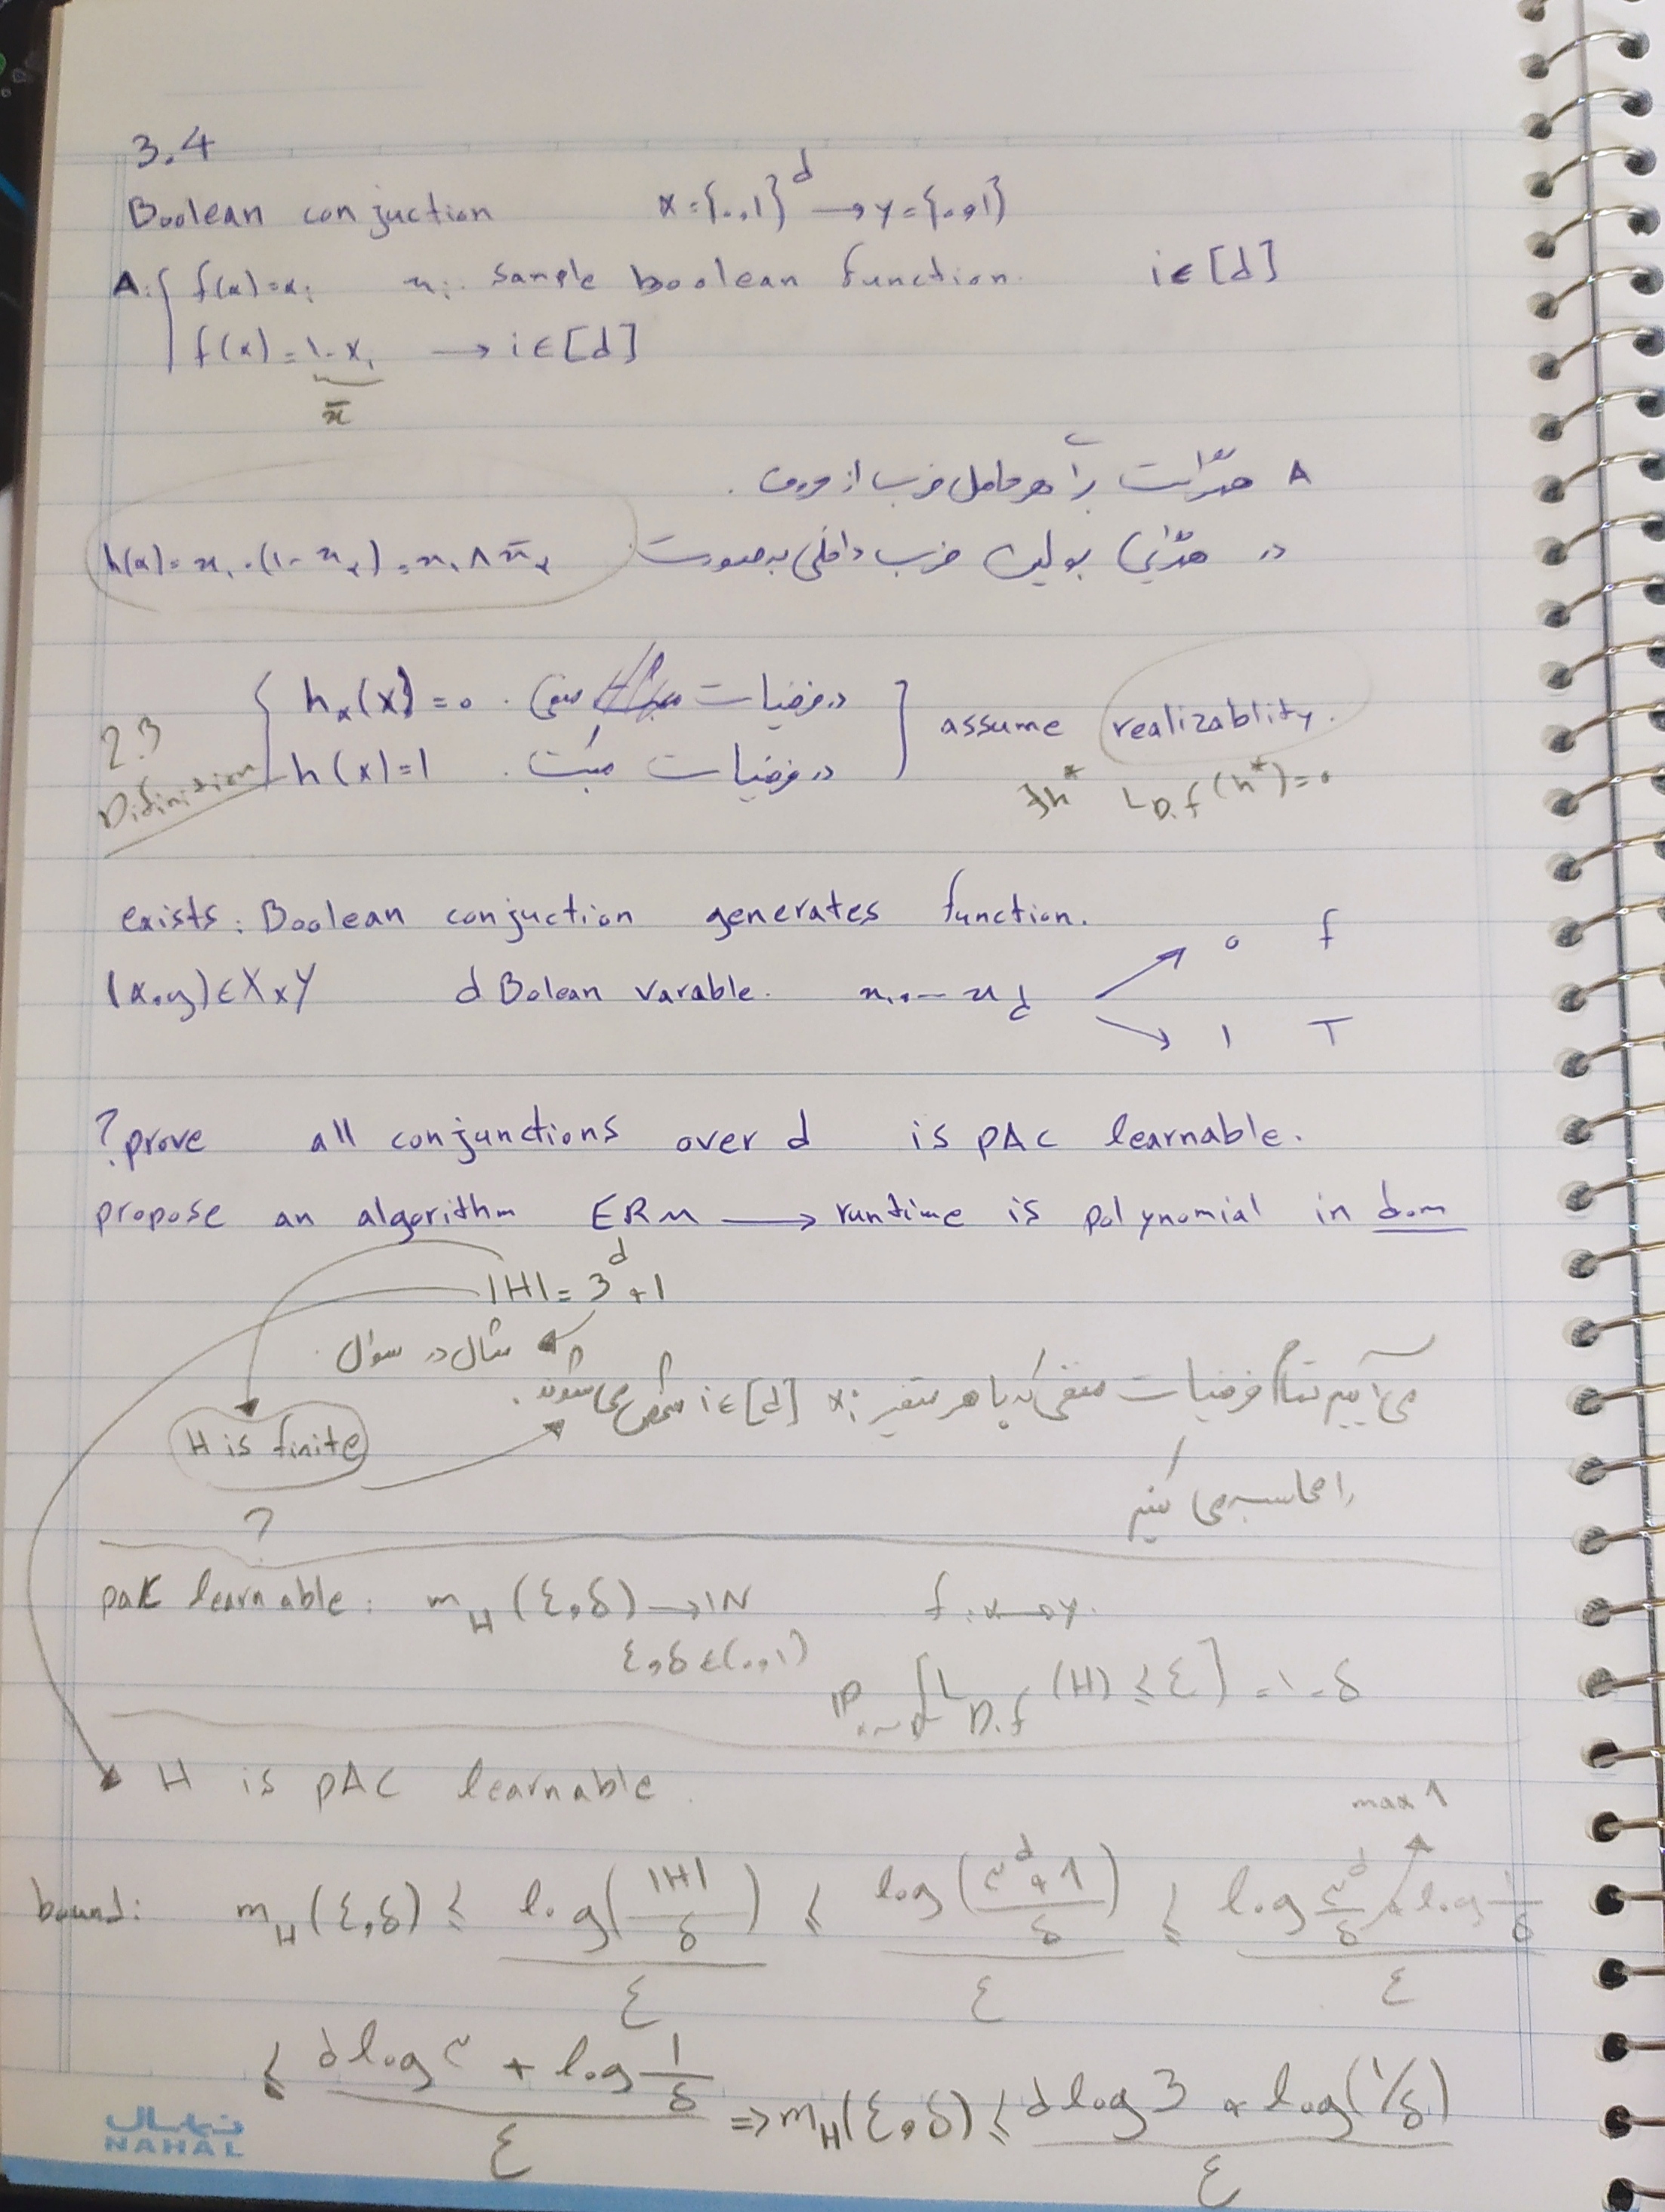 3.4
Boolean conjuction x={0,1}^d → y={0,1}
A: { f(x)=x_i x_i: sample boolean function. i∈[d]
f(x)=1-x_i → i∈[d]
x̄
A هر حامل ضرب از حروف.
در بولین ضرب داخلی به صورت h(x)=x_1.(1-x_2)=x_1∧x̄_2
2.3 Difinition { h_x(x)=0 . در فرضیات منفی } assume realizablity.
h(x)=1 . در فرضیات مثبت ∃h* L_{D,f}(h*)=0
exists: Boolean conjuction generates function.
(x,y)∈X×Y d Bolean varable. x_1,...x_d → 0 f
→ 1 T
? prove all conjunctions over d is PAC learnable.
propose an algorithm ERM → runtime is polynomial in d.m
|H|=3^d+1
مثال در سوال
می‌آییم تمام فرضیات منفی که با هر متغیر x_i i∈[d] مشخص می‌شوند.
H is finite
را محاسبه می کنیم
?
pac learnable: m_H(ε,δ)→IN f:x→y.
ε,δ∈(0,1)
IP [L_{D,f}(H)≤ε]=1-δ
H is PAC learnable.
max 1
bound: m_H(ε,δ) ≤ log(|H|/δ)/ε ≤ log((۳^d+1)/δ)/ε ≤ (log ۳^d/δ + log 1/δ)/ε
≤ (dlog ۳ + log 1/δ)/ε ⇒ m_H(ε,δ) ≤ (dlog 3 + log(1/δ))/ε
نهال
NAHAL